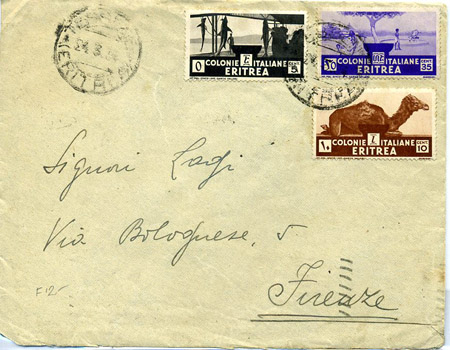 COLONIE ITALIANE
ERITREA
CENT
5
COLONIE ITALIANE
ERITREA
CENT
35
COLONIE ITALIANE
ERITREA
CENT
10
١٠
(ERITREA)
Signori Lagi
Via Bolognese, 5
Firenze
F12-